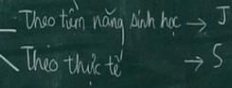 - Theo tiềm năng sinh học → J
- Theo thực tế → S